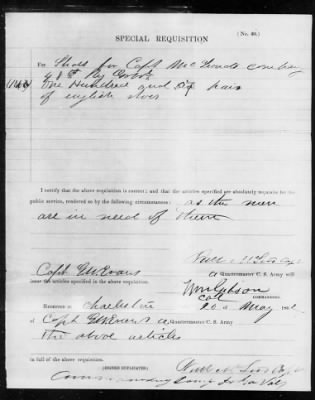 SPECIAL REQUISITION
(No. 40.)
For Shoes for Capt McLeods company
One Hundred and six pair
of english shoes
I certify that the above requisition is correct; and that the articles specified are absolutely requisite for the
public service, rendered so by the following circumstances: as the men
are in need of them
Capt G W Evans a Quartermaster C. S. Army will
issue the articles specified in the above requisition.
Col COMMANDING.
RECEIVED at Charleston 20 May
of Capt G W Evans a Quartermaster C. S. Army
the above articles
in full of the above requisition.
(SIGNED DUPLICATES)